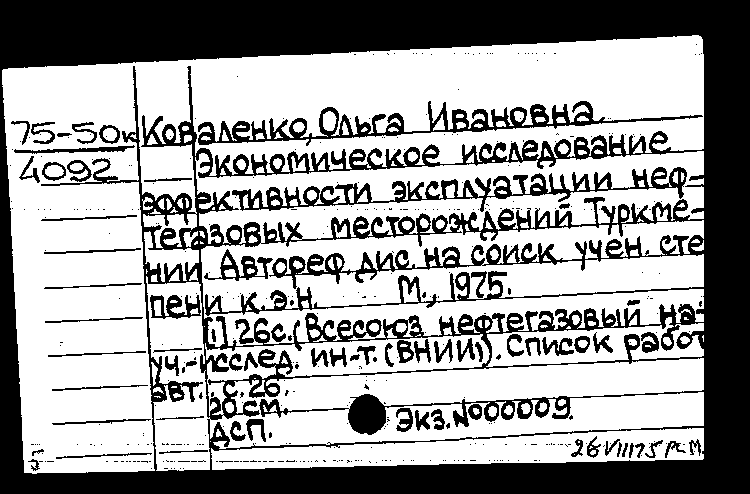 75-50к
4092
Коваленко, Ольга Ивановна.
Экономическое исследование
эффективности эксплуатации неф-
тегазовых месторождений Туркме-
нии. Автореф. дис. на соиск. учен. сте
пени к.э.н. М., 1975.
[1], 26с. (Всесоюз. нефтегазовый на-
уч.-исслед. ин-т. (ВНИИ)). Список работ
авт.: с. 26.
20 см.
ДСП. Экз. №000009.
26 VIII 75